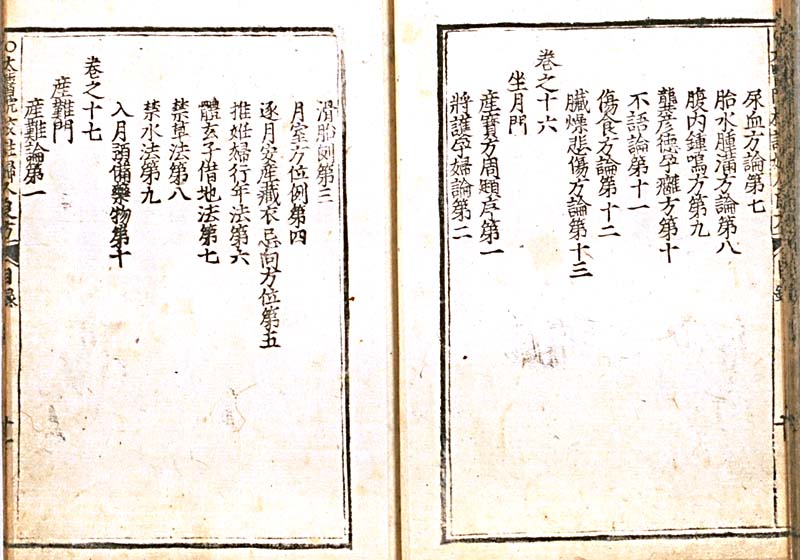 尿血方論第七
胎水腫滿方論第八
腹內鍾鳴方第九
龔彦德孕癰方第十
不語論第十一
傷食方論第十二
臟燥悲傷方論第十三
卷之十六
坐月門
產寶方周頲序第一
將護孕婦論第二
滑胎例第三
月空方位例第四
逐月安產藏衣忌向方位第五
推姙婦行年法第六
體玄子借地法第七
禁草法第八
禁水法第九
入月預備藥物第十
卷之十七
產難門
產難論第一
太醫院校註婦人良方 目錄 十一